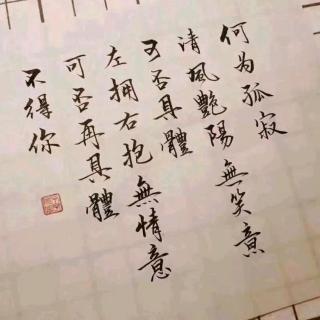 何为孤寂
清風艷陽無笑意
可否具體
左擁右抱無情意
可否再具體
不得你